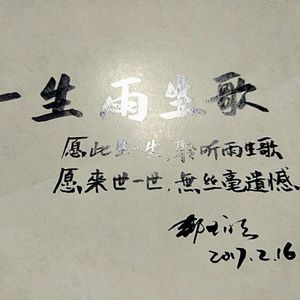 一生雨生歌
愿此生一生,聆听雨生歌
愿来世一世,無丝毫遺憾
2017.2.16